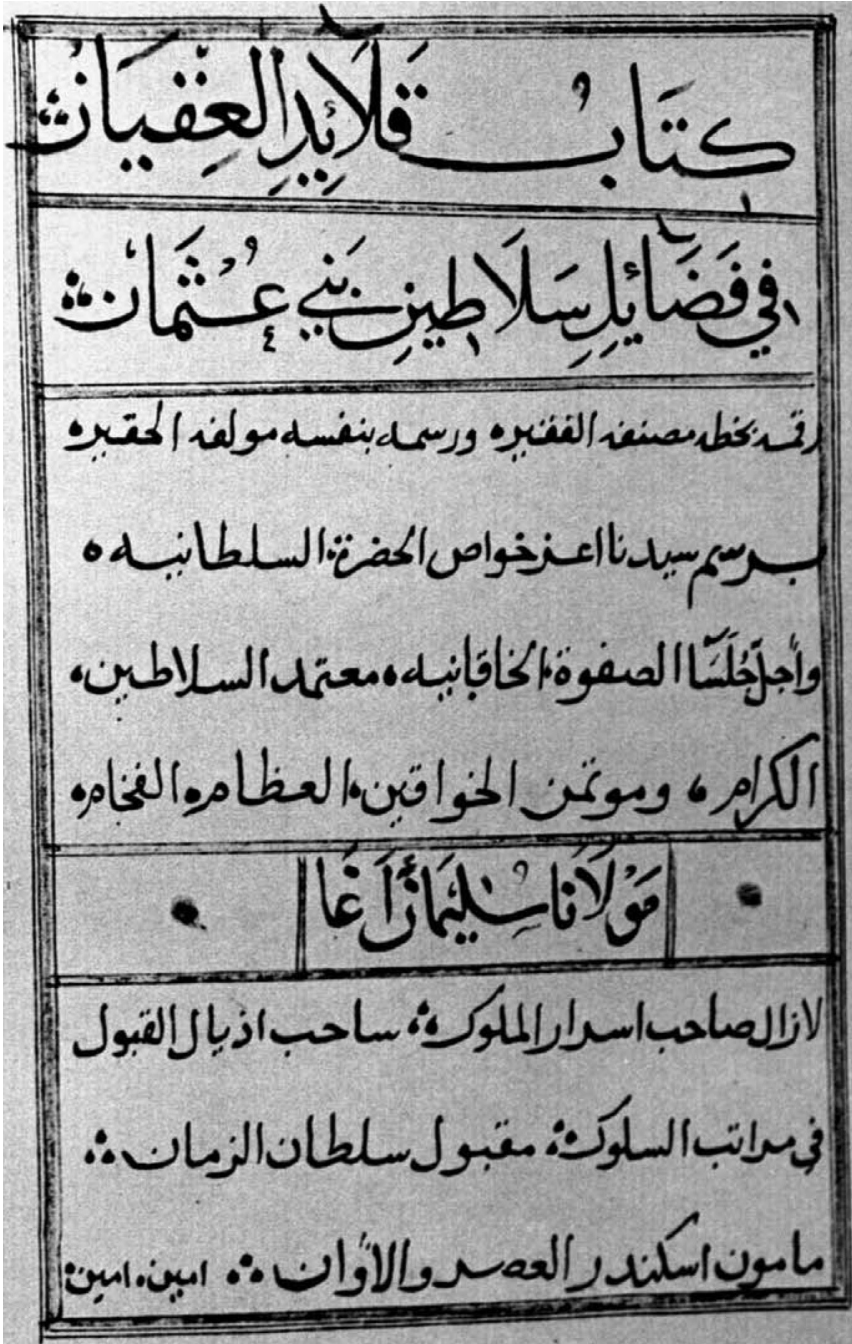 كِتَابُ قَلَآئِدِ العِقْيَانْ
في فَضَآئِلِ سَلَاطِينِ بَنِي عُثْمَانْ
رقمه بخطه مصنفه الفقيره ورسمه بنفسه مولفه الحقيره
برسم سيدنا اعز خواص الحضرة السلطانيه ه
وأجلّ جُلَسَّا الصفوة الخاقانيه، معتمد السلاطين،
الكرام، وموتمن الخواقين، العظام، الفخام،
مَوْلَانَا سُلَيْمَانْ آغَا
لازال صاحب اسرار الملوك؞ ساحب اذيال القبول
في مراتب السلوك؞ مقبول سلطان الزمان؞
مامون اسكندر العصر والأوان؞ امين، امين؞